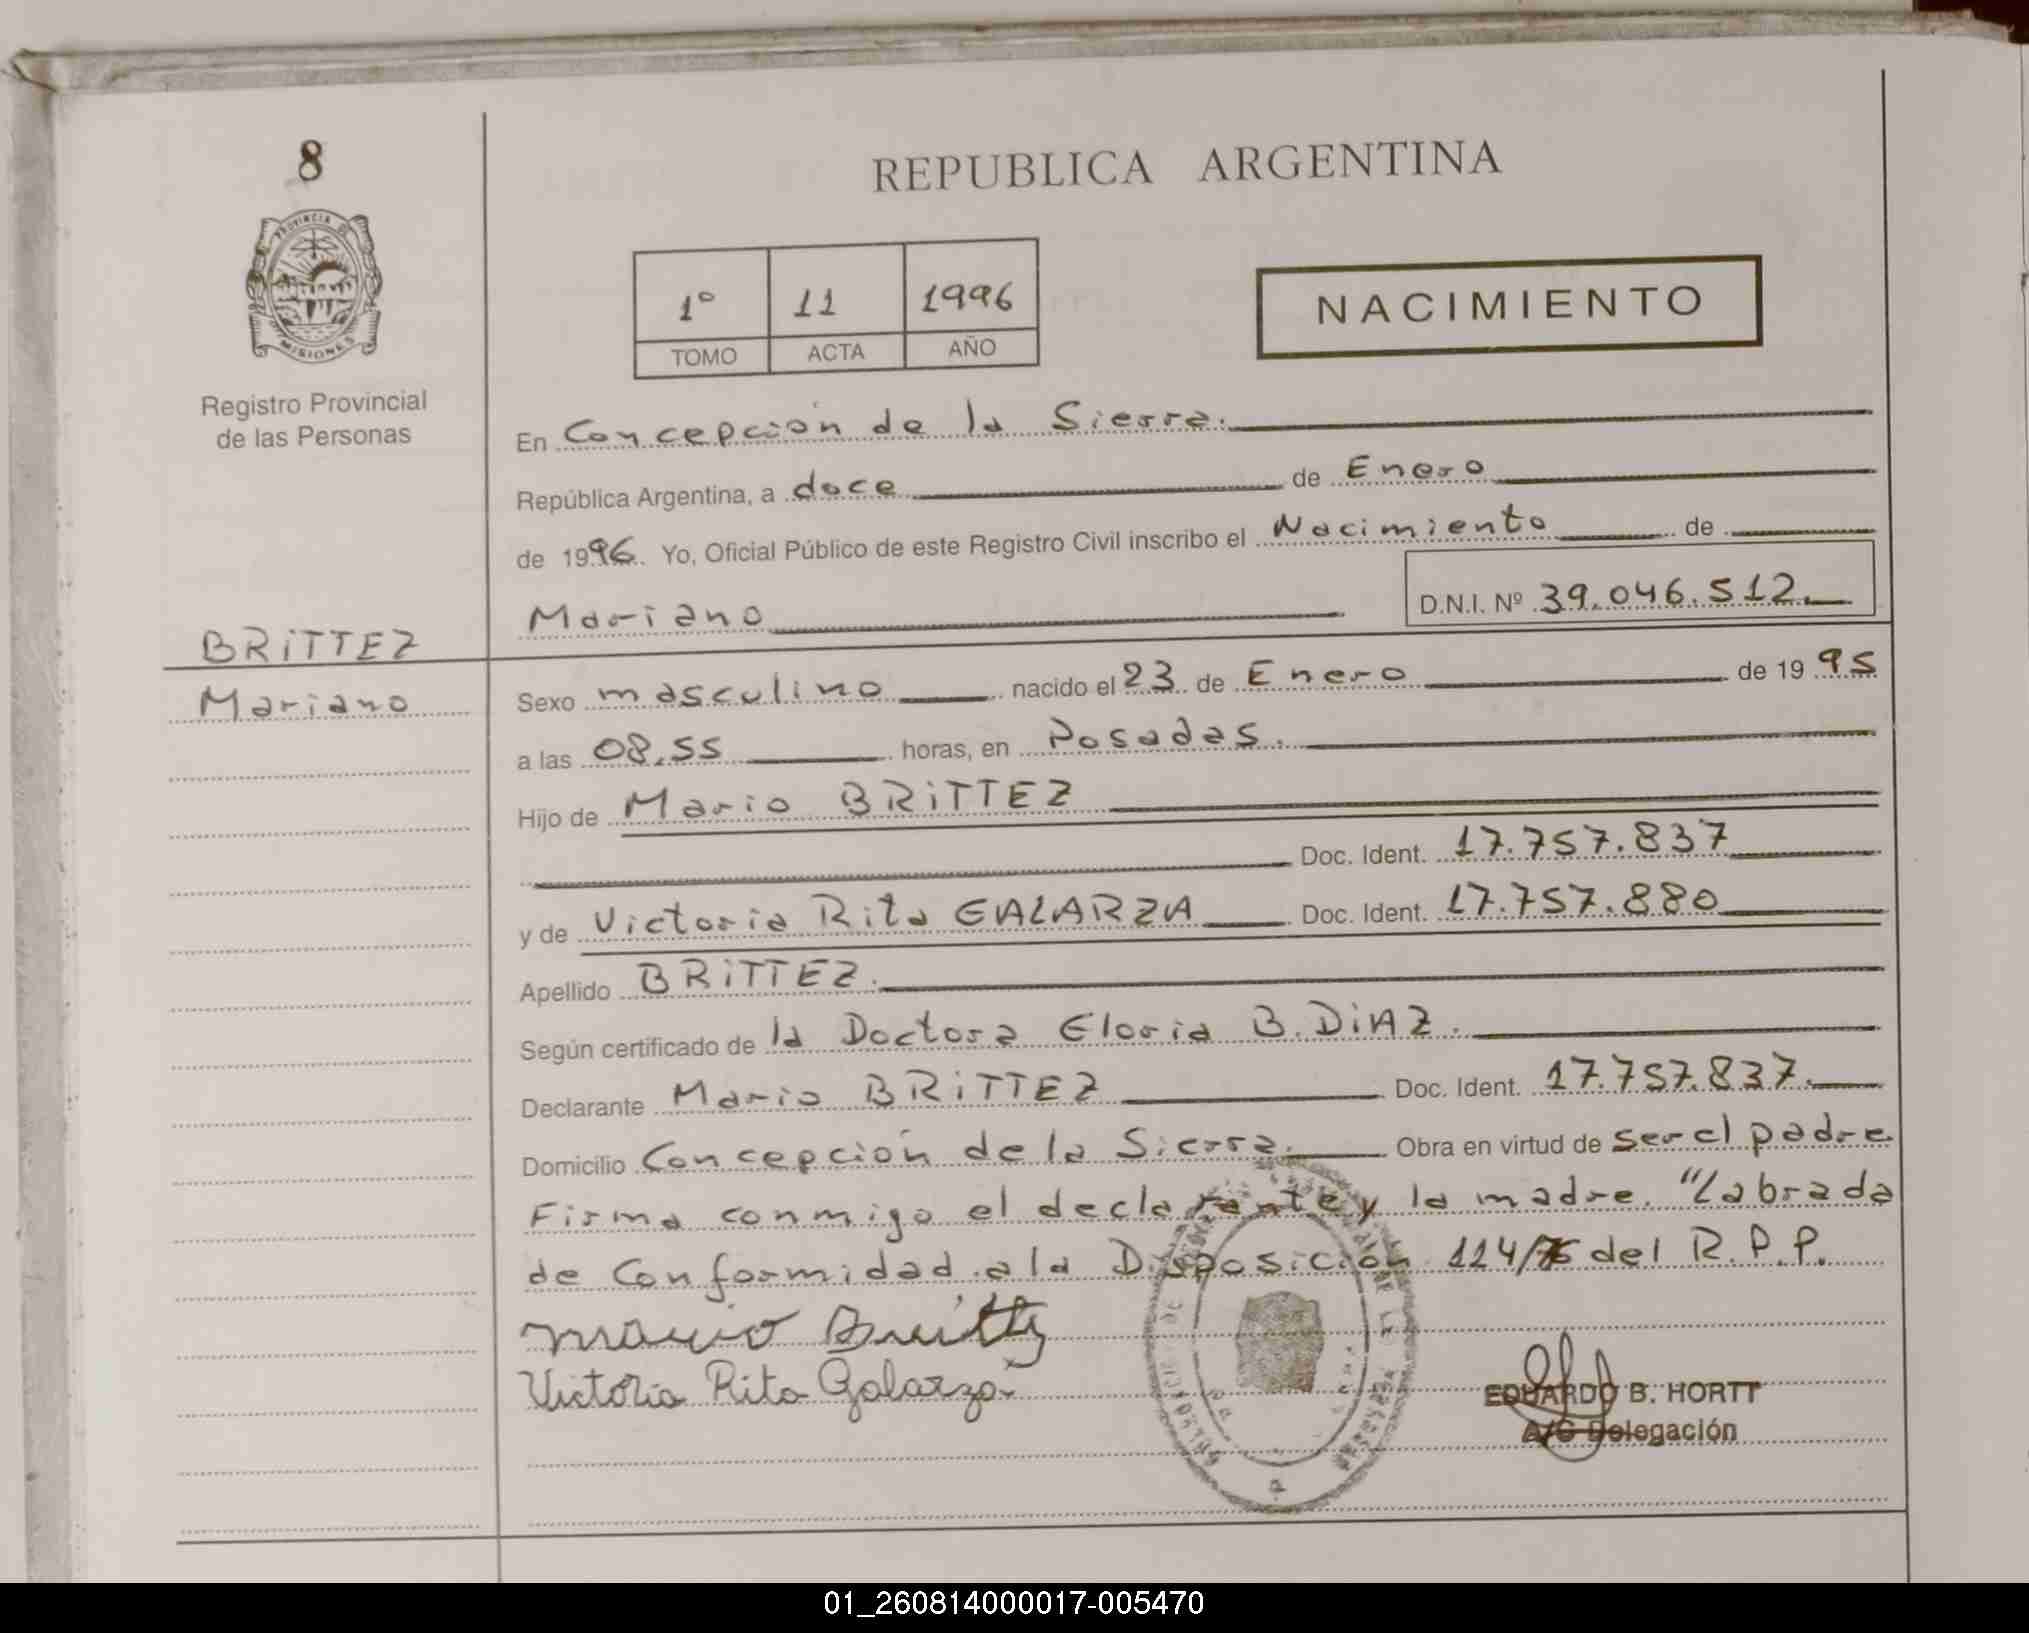 8
PROVINCIA DE
MISIONES
Registro Provincial
de las Personas
BRiTTEZ
Mariano
REPUBLICA ARGENTINA
1º 11 1996
TOMO ACTA AÑO
NACIMIENTO
En Concepción de la Sierra.
República Argentina, a doce de Enero
de 1996. Yo, Oficial Público de este Registro Civil inscribo el Nacimiento de
Mariano D.N.I. Nº 39.046.512.
Sexo masculino nacido el 23 de Enero de 1995
a las 08,55 horas, en Posadas.
Hijo de Mario BRiTTEZ
Doc. Ident. 17.757.837
y de Victoria Rita GALARZA Doc. Ident. 17.757.880
Apellido BRiTTEZ.
Según certificado de la Doctora Gloria B. DiAZ.
Declarante Mario BRiTTEZ Doc. Ident. 17.757.837.
Domicilio Concepción de la Sierra. Obra en virtud de ser el padre.
Firma conmigo el declarante y la madre. "Labrada
de Conformidad a la Disposición 114/76 del R.P.P.
Mario Brittez
Victoria Rita Galarza
EDUARDO B. HORTT
A/C Delegación
01_260814000017-005470